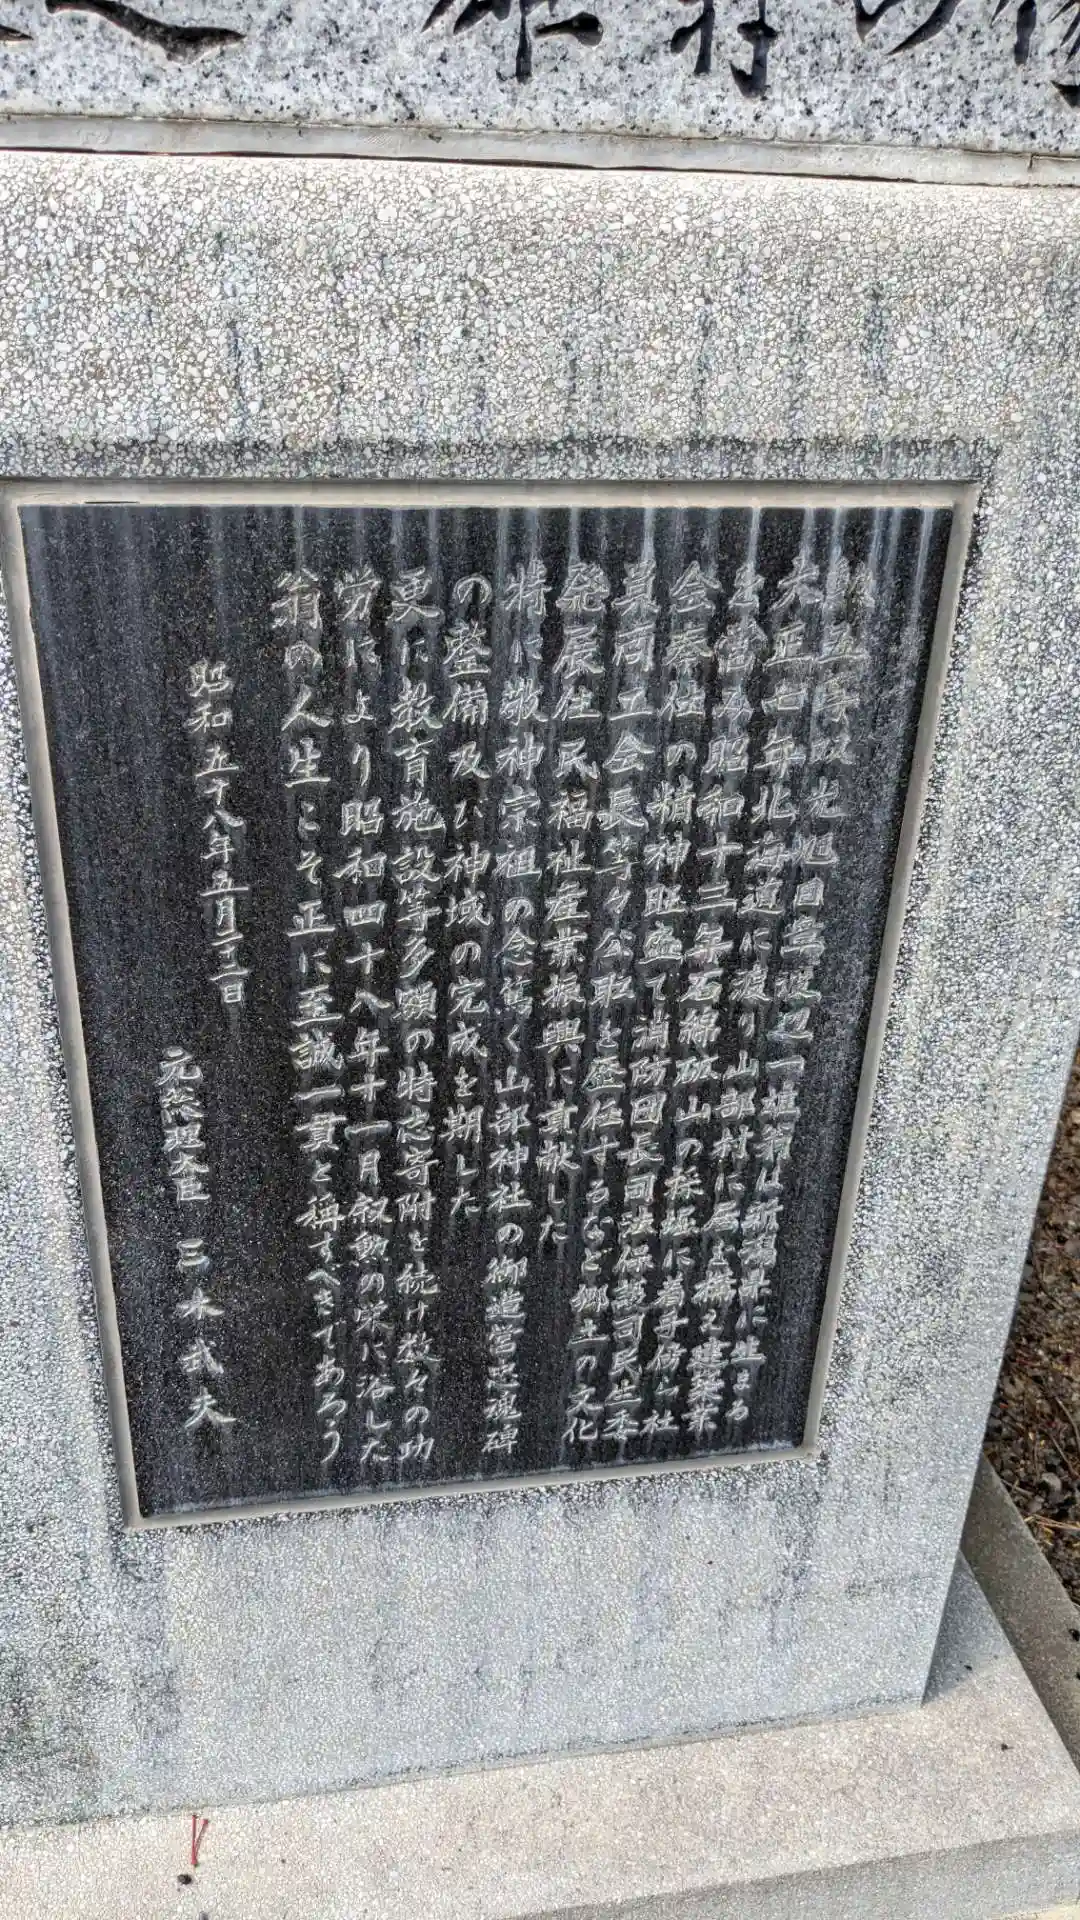 勲五等双光旭日章渡辺一雄翁は新潟県に生まる
大正七年北海道に渡り山部村に居を構え建築業
を営み昭和十三年石綿砿山の採掘に着手傍ら社
会奉仕の精神旺盛で消防団長司法保護司民生委
員商工会長等々公取を歴任するなど郷土の文化
発展住民福祉産業振興に貢献した
特に敬神宗祖の念篤く山部神社の御造営忠魂碑
の整備及び神域の完成を期した
更に教育施設等多額の特志寄附を続け数々の功
労により昭和四十八年十一月叙勲の栄に浴した
翁の人生こそ正に至誠一貫と称すべきであろう
昭和五十八年五月十二日
元総理大臣 三木武夫